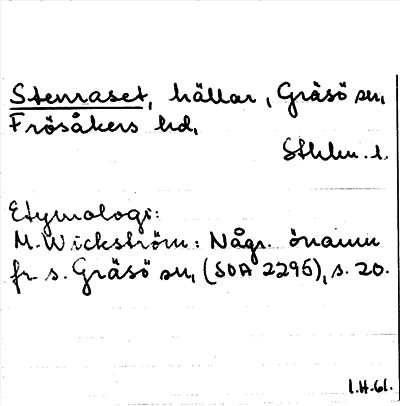 Stenraset, hällar, Gräsö sn,
Frösåkers hd,
Sthlm. l.
Etymologi:
M. Wickström: Någr. önamn
fr. s. Gräsö sn, (SOA 2295), s. 20.
I.H.61.